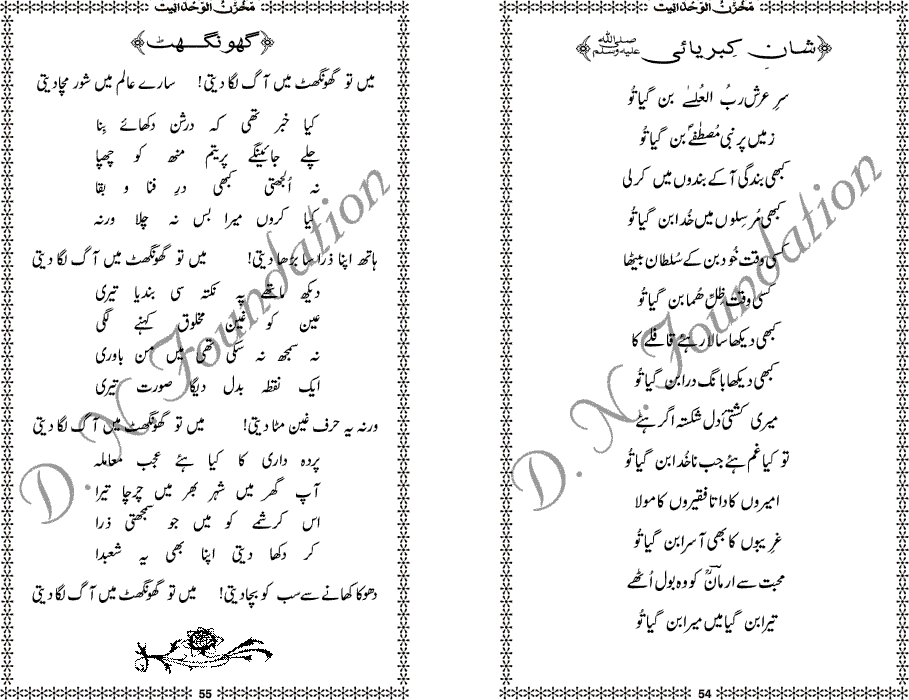 مَخْزَنُ الْوَحْدَانِیت
﴿شانِ کِبریائی صلی اللہ علیہ وسلم﴾
سرِ عرش ربُ العُلےٰ بن گیا تُو
زمیں پر نبی مُصطفےٰؐ بن گیا تُو
کبھی بندگی آ کے بندوں میں کر لی
کبھی مُرسلوں میں خُدا بن گیا تُو
کسی وقت خُود بن کے سُلطان بیٹھا
کسی وقت ظلِّ ھُما بن گیا تُو
کبھی دیکھا سالار ہئے قافلے کا
کبھی دیکھا بانگِ درا بن گیا تُو
میری کشتیٔ دل شکستہ اگر ہئے
تو کیا غم ہئے جب ناخُدا بن گیا تُو
امیروں کا داتا فقیروں کا مولا
غریبوں کا بھی آسرا بن گیا تُو
محبت سے ارمانؔ کو وہ بول اُٹھے
تیرا بن گیا میں میرا بن گیا تُو
54
مَخْزَنُ الْوَحْدَانِیت
﴿گھونگھٹ﴾
میں تو گھونگھٹ میں آگ لگا دیتی! سارے عالم میں شور مچا دیتی
کیا خبر تھی کہ درشن دکھائے بِنا
چلے جائینگے پریتم منھ کو چھپا
نہ اُلجھتی کبھی درِ فنا و بقا
کیا کروں میرا بس نہ چلا ورنہ
ہاتھ اپنا ذرا سا بڑھا دیتی! میں تو گھونگھٹ میں آگ لگا دیتی
دیکھ ماتھے پہ نکتہ سی بندیا تیری
عین کو غین مخلوق کہنے لگی
نہ سمجھ نہ سکی تھی میں من باوری
ایک نقطہ بدل دیگا صورت تیری
ورنہ یہ حرف غین مٹا دیتی! میں تو گھونگھٹ میں آگ لگا دیتی
پردہ داری کا کیا ہئے عجب معاملہ
آپ گھر میں شہر بھر میں چرچا تیرا
اس کرشمے کو میں جو سمجھتی ذرا
کر دکھا دیتی اپنا بھی یہ شعبدا
دھوکا کھانے سے سب کو بچا دیتی! میں تو گھونگھٹ میں آگ لگا دیتی
55
D. N. Foundation
D. N. Foundation